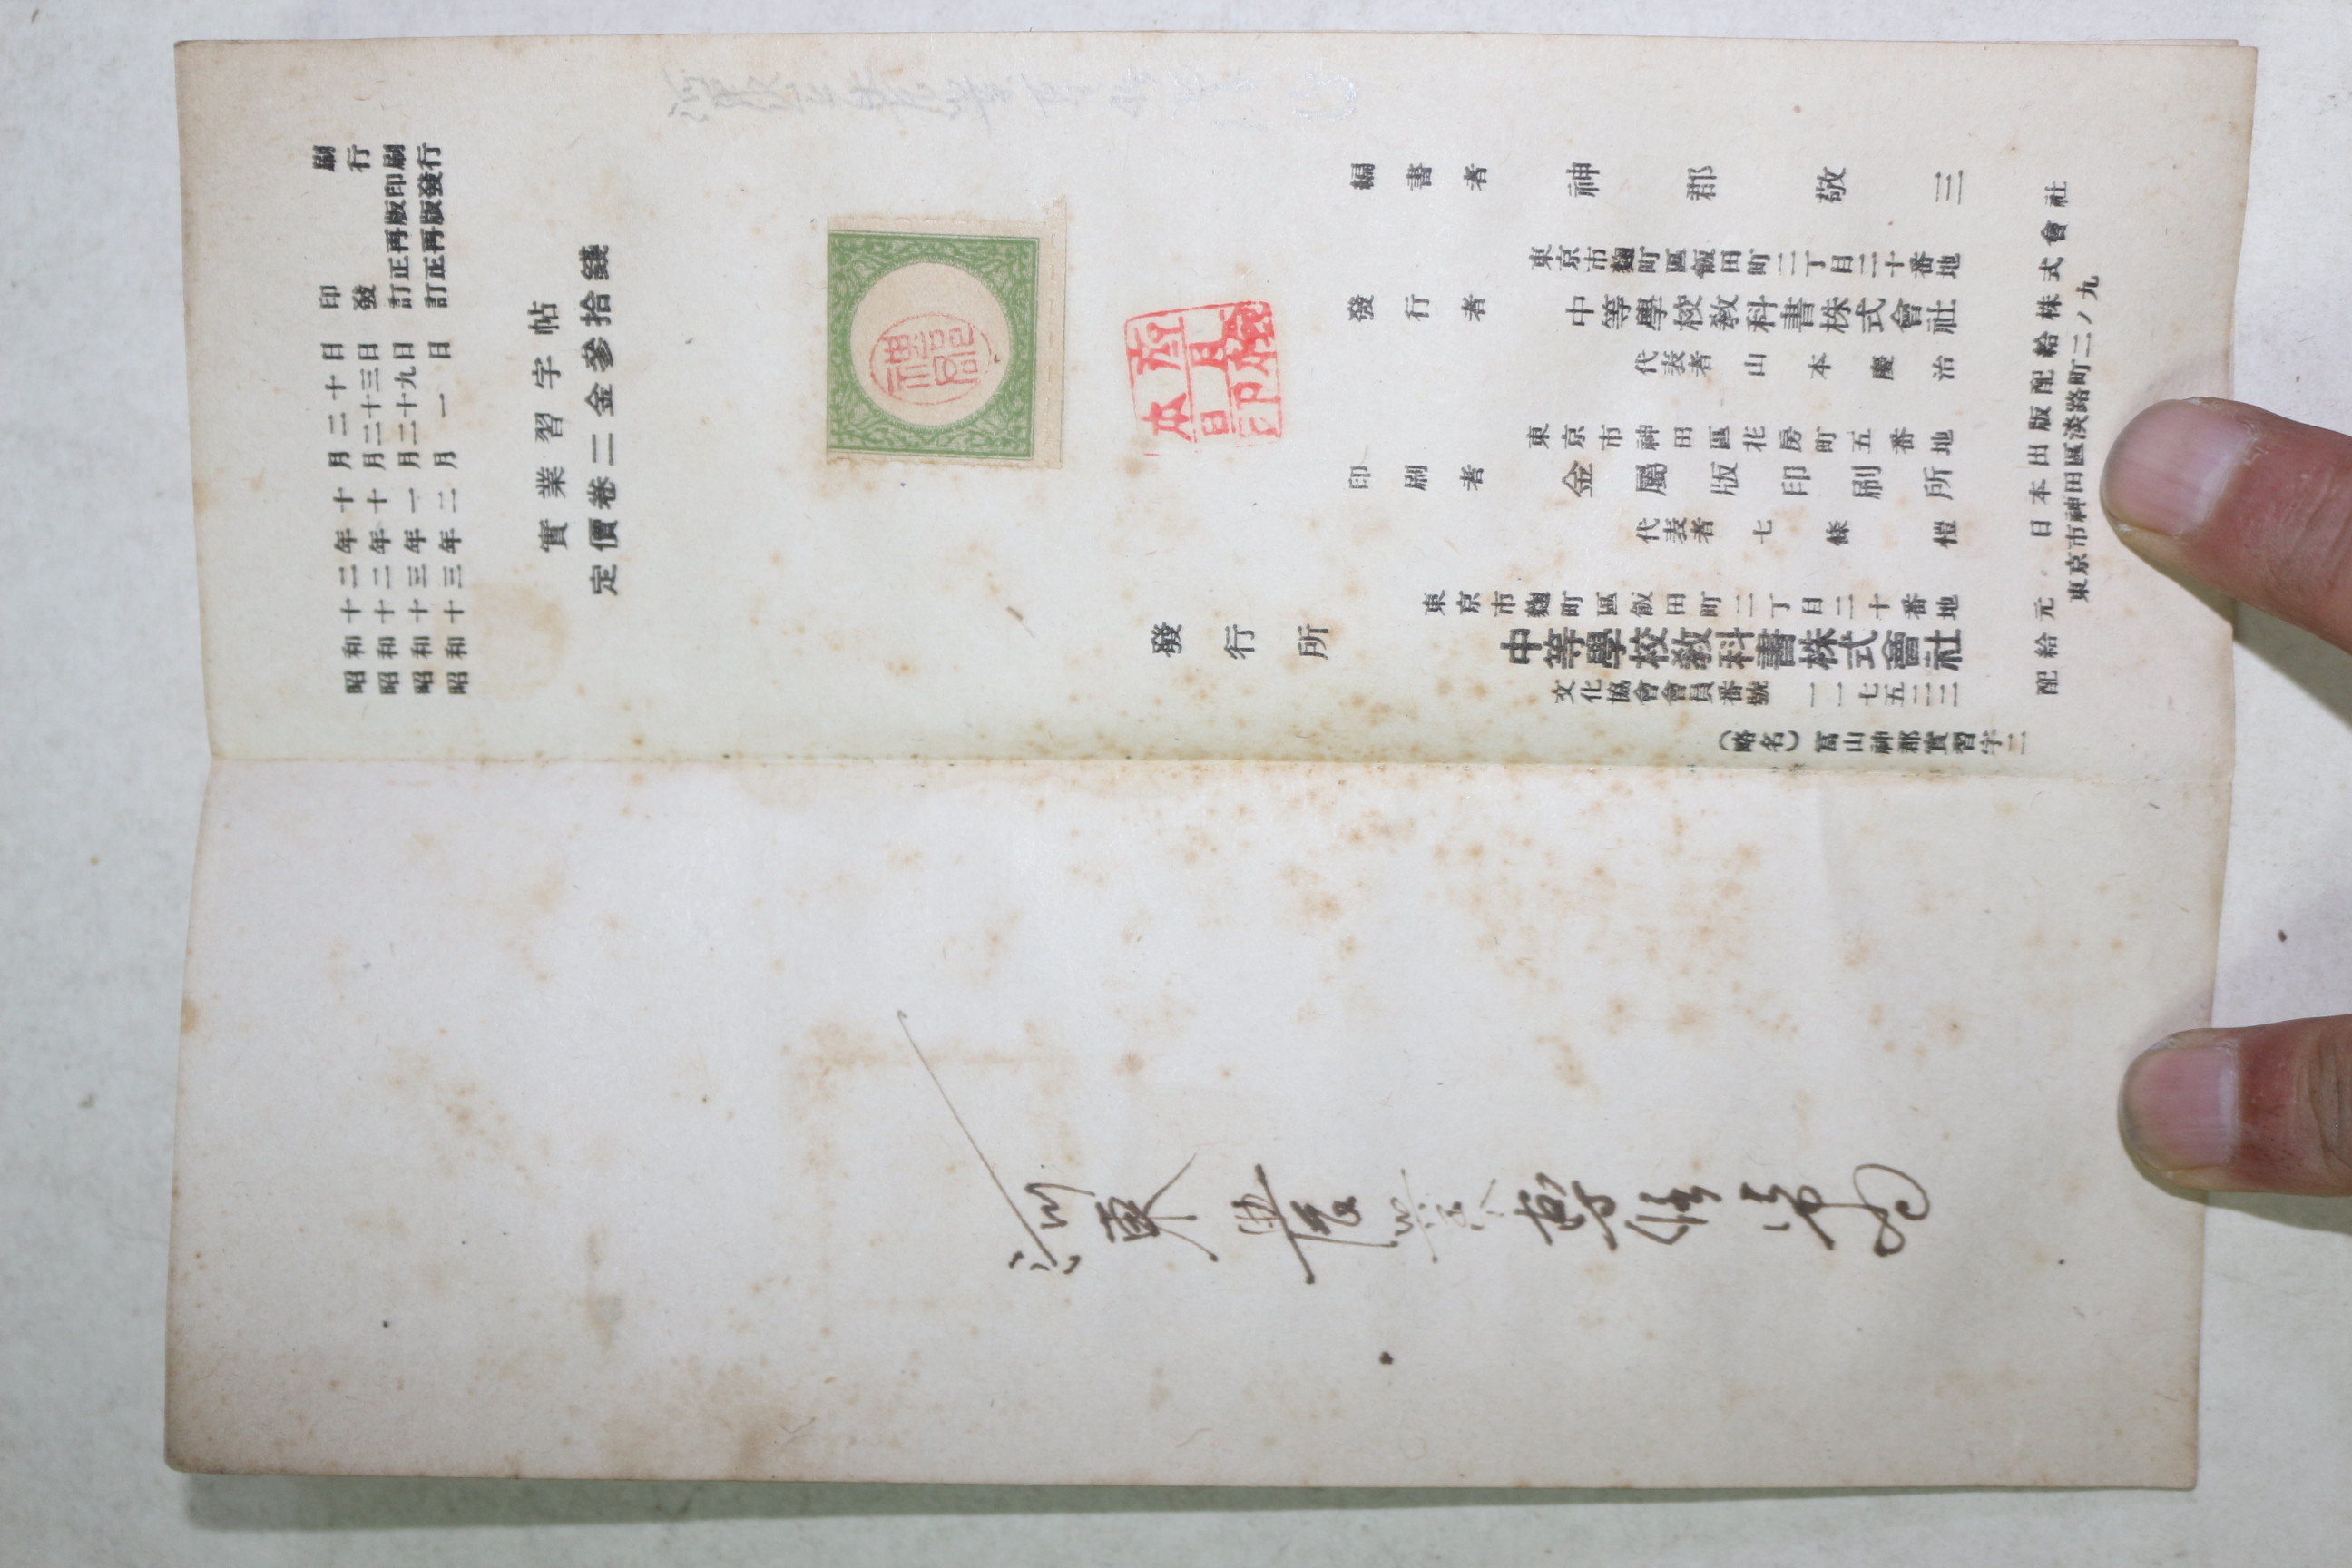 昭和十二年十月二十日印刷
昭和十二年十月二十三日發行
昭和十三年一月二十九日訂正再版印刷
昭和十三年二月一日訂正再版發行
實業習字帖
定價卷二金參拾錢
編書者 神郡敬三
東京市麹町區飯田町二丁目二十番地
發行者 中等學校教科書株式會社
代表者 山本慶治
東京市神田區花房町五番地
印刷者 金屬版印刷所
代表者 七條愷
東京市麹町區飯田町二丁目二十番地
發行所 中等學校教科書株式會社
文化協會會員番號 一一七五三二
(略名)冨山神郡實習字二
配給元 日本出版配給株式會社
東京市神田區淡路町二ノ九